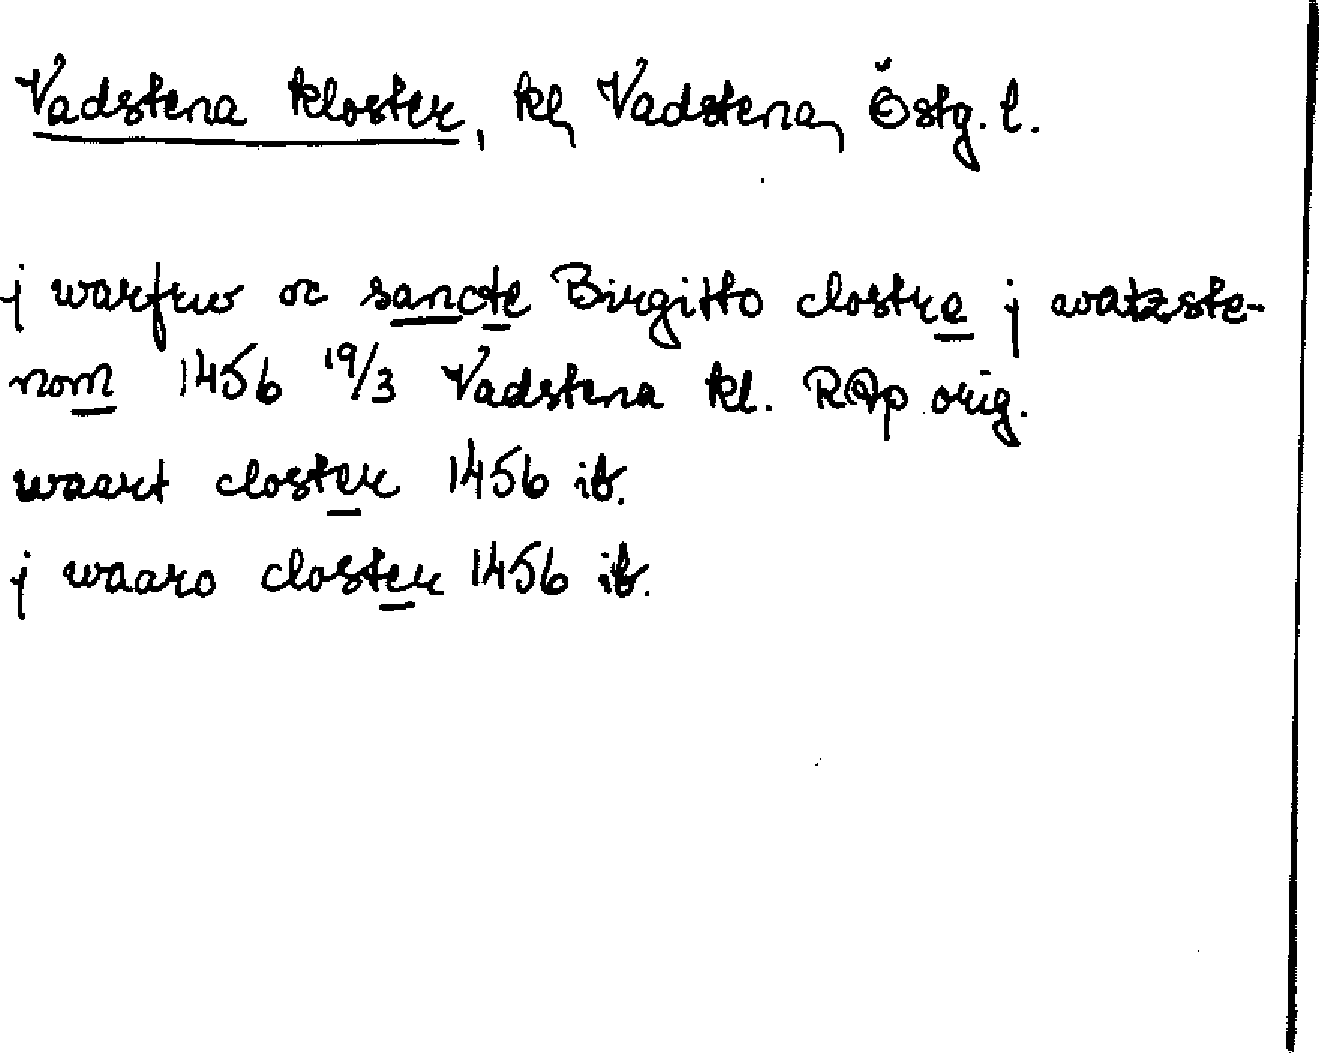 Vadstena kloster, kl, Vadstena, Östg. l.
j warfrw oc sancte Birgitto clostre j watzste-
nom 1456 19/3 Vadstena kl. RAp orig.
waart closter 1456 ib.
j waaro closter 1456 ib.